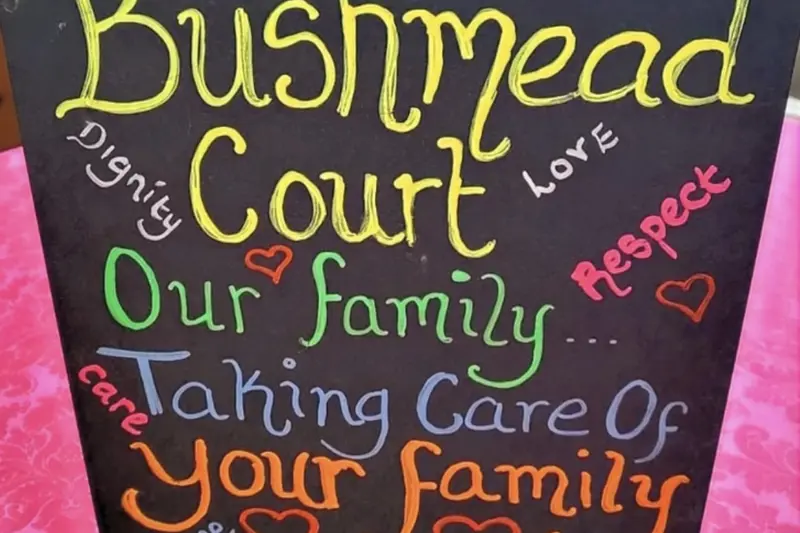 Bushmead
Dignity
Court
Love
Respect
Our family...
care
Taking Care Of
your family